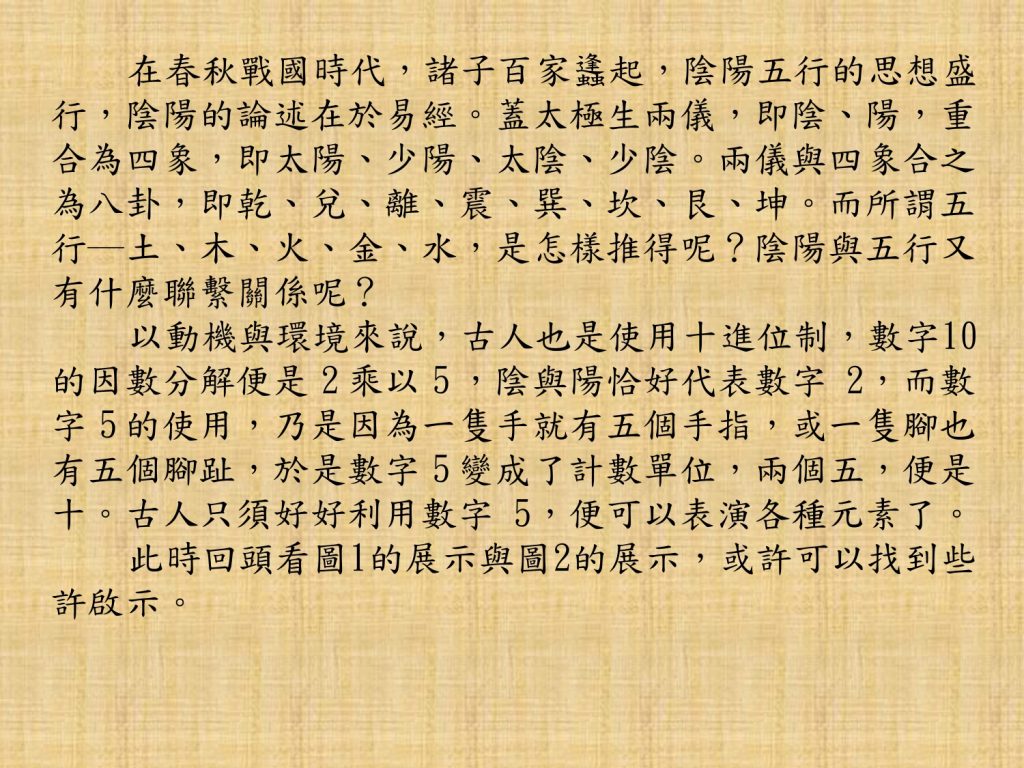 在春秋戰國時代，諸子百家蠭起，陰陽五行的思想盛
行，陰陽的論述在於易經。蓋太極生兩儀，即陰、陽，重
合為四象，即太陽、少陽、太陰、少陰。兩儀與四象合之
為八卦，即乾、兌、離、震、巽、坎、艮、坤。而所謂五
行—土、木、火、金、水，是怎樣推得呢？陰陽與五行又
有什麼聯繫關係呢？
以動機與環境來說，古人也是使用十進位制，數字10
的因數分解便是２乘以５，陰與陽恰好代表數字 2，而數
字５的使用，乃是因為一隻手就有五個手指，或一隻腳也
有五個腳趾，於是數字５變成了計數單位，兩個五，便是
十。古人只須好好利用數字 5，便可以表演各種元素了。
此時回頭看圖1的展示與圖2的展示，或許可以找到些
許啟示。